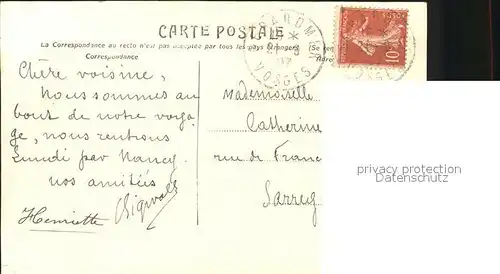 CARTE POSTALE
La Correspondance au recto n'est pas acceptée par tous les pays étrangers. (Se ren
Correspondance
VOSGES
10
Chère voisine,
Nous sommes au
bout de notre voya
ge, nous rentrons
Lundi par Nancy.
nos amitiés
Henriette
Mademoiselle
Catherine
rue de France
Sarreg
privacy protection
Datenschutz